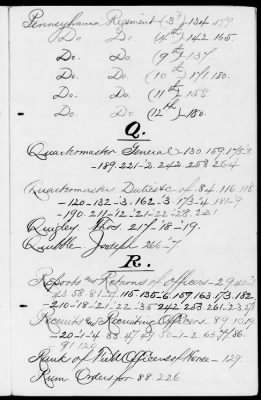 Pennsylvania Regiment (3d) 134 179
Do. Do. (4th) 142 165.
Do. Do. (9th) 137
Do. Do. (10th) 171 180.
Do. Do. (11th) 158
Do. Do. (12th) 180.
Q.
Quartermaster General - 130 159 175-8
-189. 221-2 242 253 264
Quartermasters Duties &c of 84. 116. 118
-120-132-3. 162-3 173-4 181-9
-190 211-12-21-22-28. 231
Quigley Thos. 217-18-19.
Quibble Joseph 266-7.
R.
Reports and Returns of Officers - 29 40-1
115 135-6. 157. 163 173. 182
210-18-21-22-35 242 253 261-2
Recruits and Recruiting Officers
-20-1-4
91 120
Rank of Field Officers of Horse - 129.
Rum Orders for 88. 226